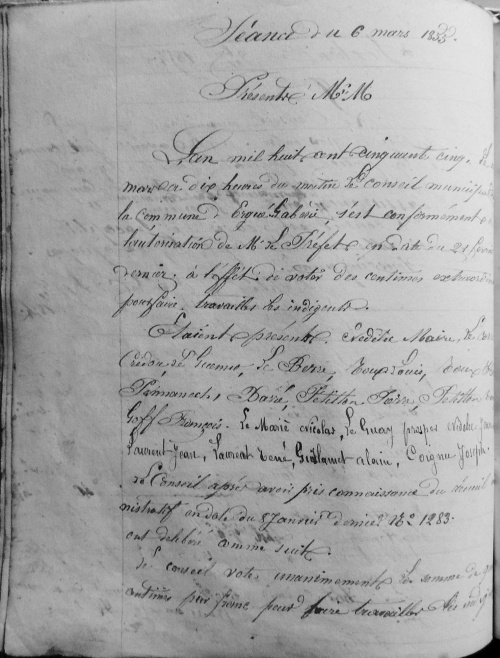 Séance du 6 mars 1855.
Présents M.rs M
L'an mil huit cent cinquante cinq. le
mars à dix heures du matin le conseil municip
la commune d'Ergué Gabéric, s'est conformément
l'autorisation de Mr le Préfet en date du 21
dernier. à l'effet de voter des centimes extraordin
pour faire travailler les indigents.
Etaient présents Maire, le
Credou de Guenno, Le Berre, Roux Louis,
Barré, Petillon Pierre, Petillon
Goff François. Le Marié Nicolas, Le Guay prosper
Laurent Jean, Laurent René, Guillamet alain, Coignu Joseph.
Le Conseil après avoir pris connaissance du recueil
nistratif en date du janvier dernier No 1283.
ont délibéré comme suit.
Le conseil vote unanimement la somme de
centimes par franc pour faire travailler les